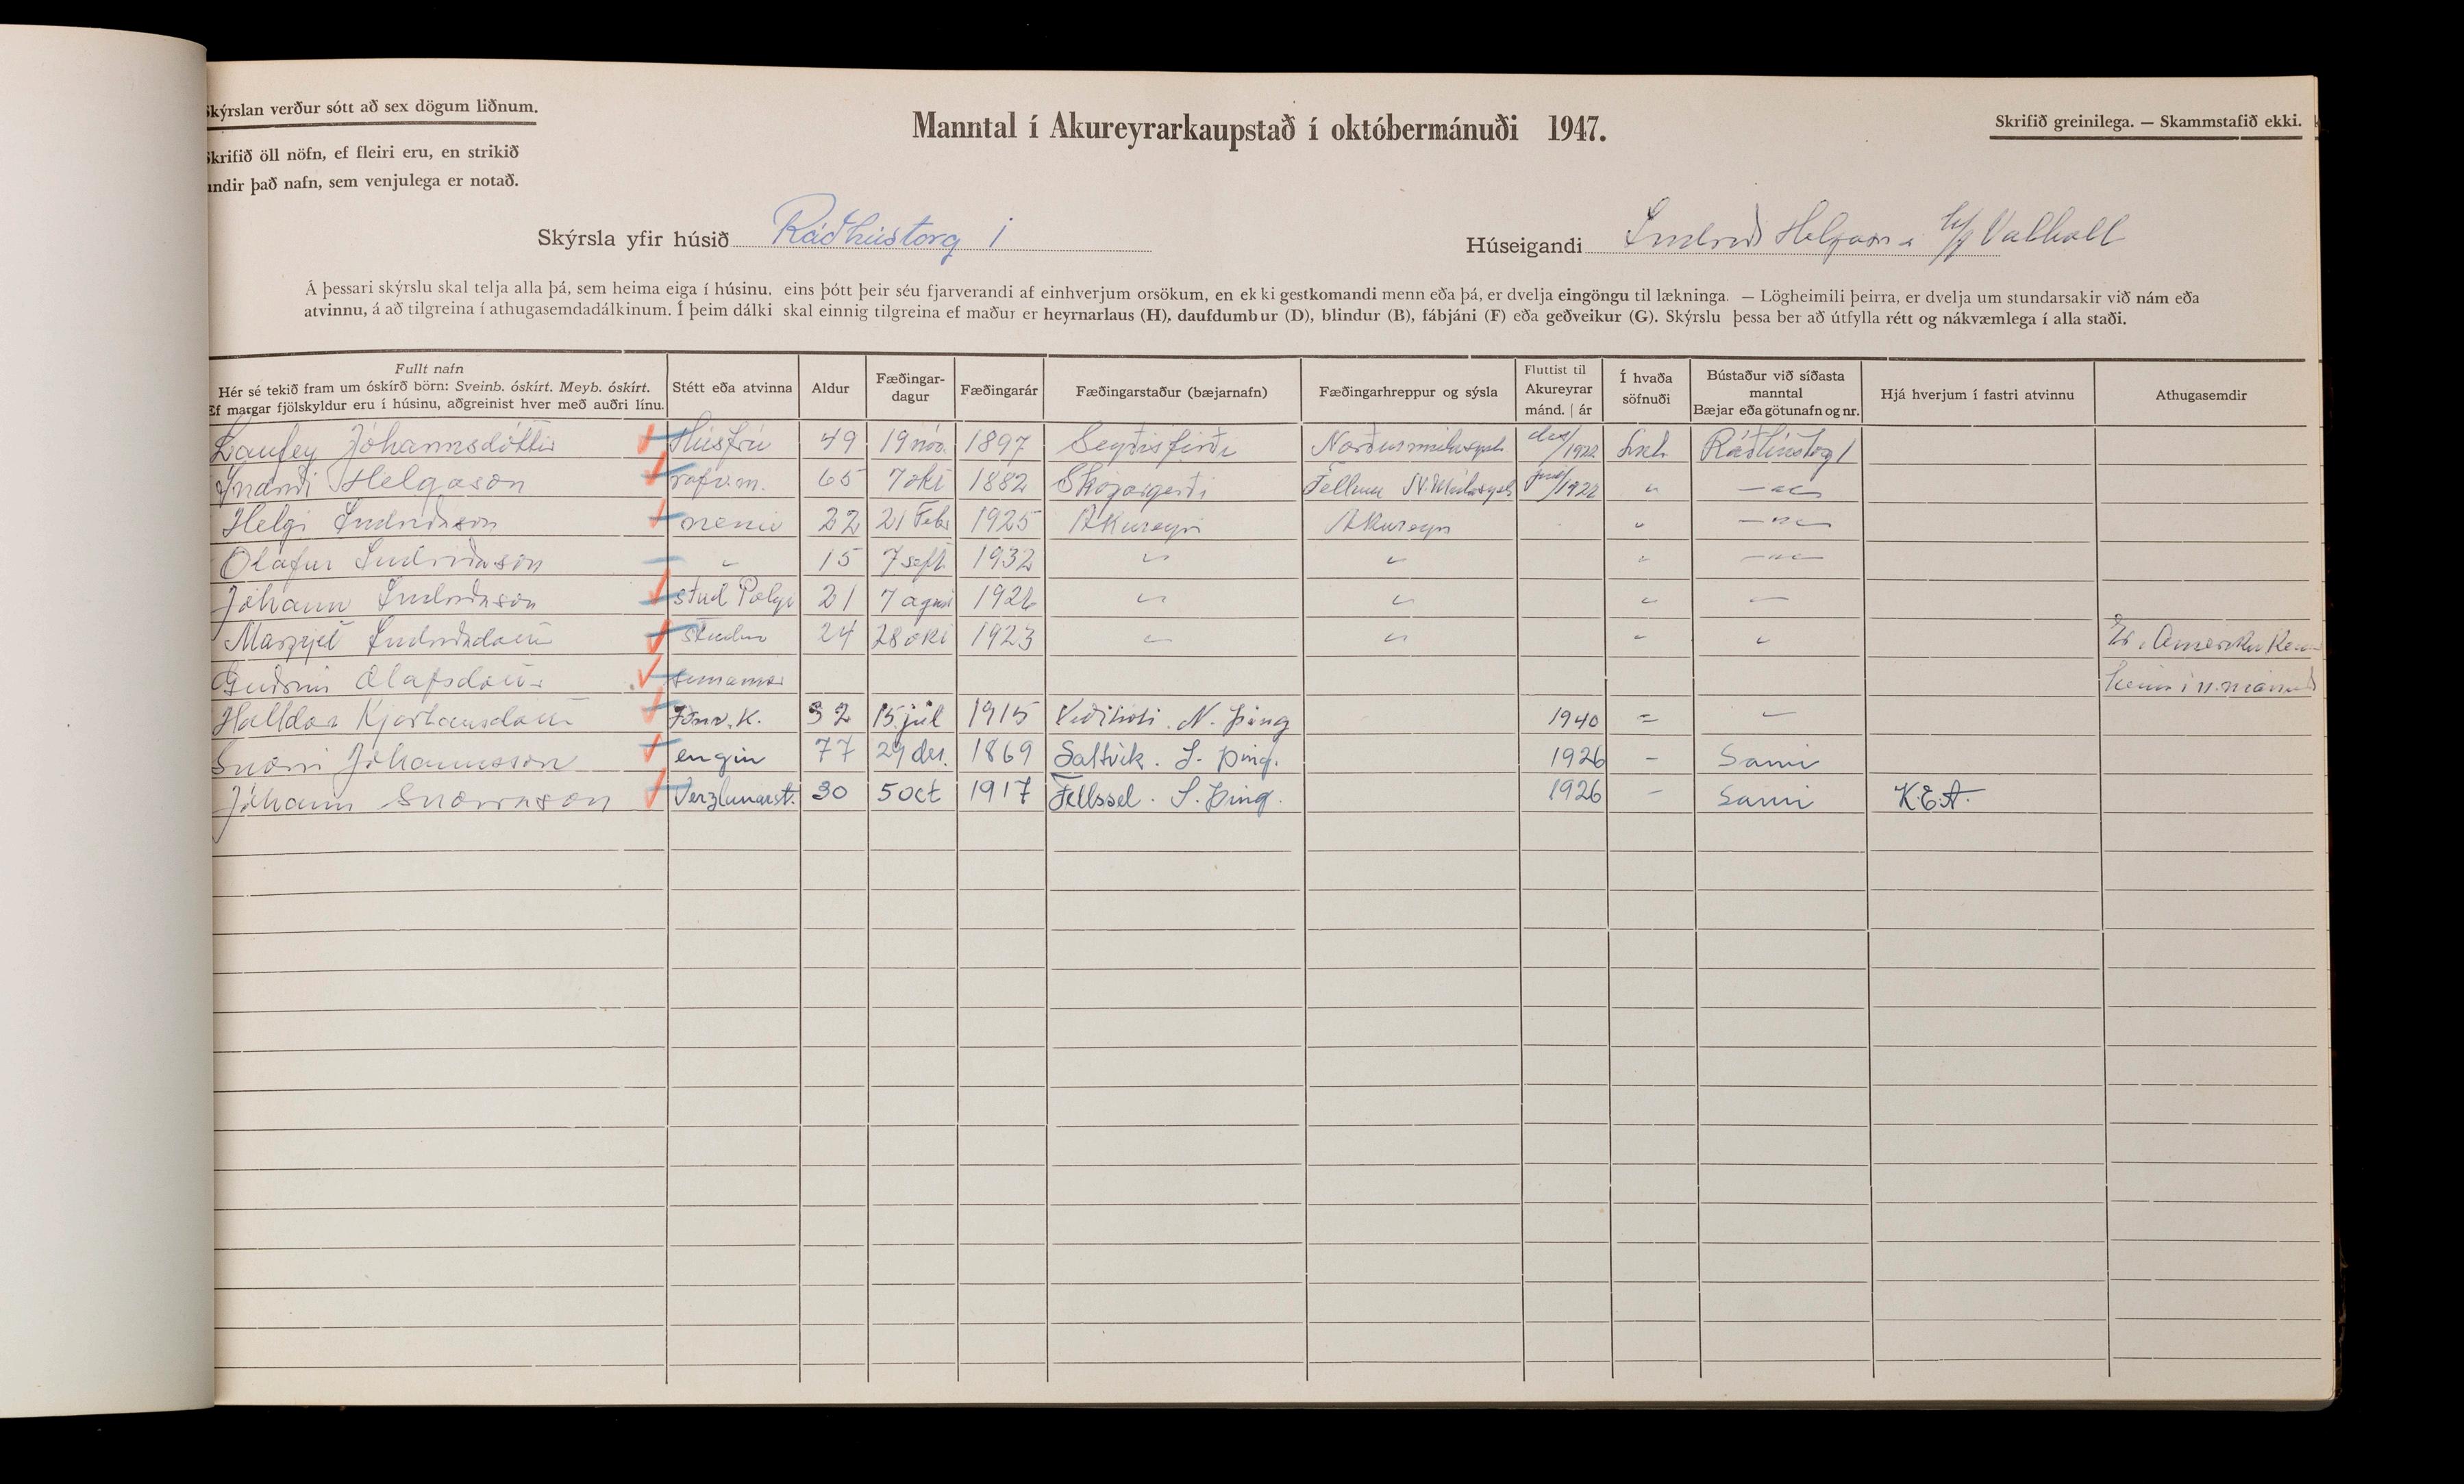 Skýrslan verður sótt að sex dögum liðnum.
Skrifið öll nöfn, ef fleiri eru, en strikið
undir það nafn, sem venjulega er notað.
Manntal í Akureyrarkaupstað í októbermánuði 1947.
Skrifið greinilega. — Skammstafið ekki.
Skýrsla yfir húsið Ráðhústorg 1
Húseigandi Indriði Helgason h/f Valhöll
Á þessari skýrslu skal telja alla þá, sem heima eiga í húsinu, eins þótt þeir séu fjarverandi af einhverjum orsökum, en ekki gestkomandi menn eða þá, er dvelja eingöngu til lækninga. — Lögheimili þeirra, er dvelja um stundarsakir við nám eða
atvinnu, á að tilgreina í athugasemdadálkinum. Í þeim dálki skal einnig tilgreina ef maður er heyrnarlaus (H), daufdumbur (D), blindur (B), fábjáni (F) eða geðveikur (G). Skýrslu þessa ber að útfylla rétt og nákvæmlega í alla staði.
Fullt nafn
Hér sé tekið fram um óskírð börn: Sveinb. óskírt. Meyb. óskírt.
Ef margar fjölskyldur eru í húsinu, aðgreinist hver með auðri línu.
Stétt eða atvinna
Aldur
Fæðingar-
dagur
Fæðingarár
Fæðingarstaður (bæjarnafn)
Fæðingarhreppur og sýsla
Fluttist til
Akureyrar
mánd. | ár
Í hvaða
söfnuði
Bústaður við síðasta
manntal
Bæjar eða götunafn og nr.
Hjá hverjum í fastri atvinnu
Athugasemdir
Laufey Jóhannsdóttir Húsfrú 49 19 nóv. 1897 Seyðisfirði Norðurmúlasýsla des/1922 Ráðhústorg 1
Indriði Helgason rafvm. 65 7 okt 1882 Skógargerði Fellum N.Múlasýsla /1922 " —"—
Helgi Indriðason nemi 22 21 Febr 1925 Akureyri Akureyri " —"—
Olafur Indriðason " 15 7 sept 1932 " " " —"—
Jóhann Indriðason stud Polyt 21 7 agust 1926 " " " —
Margrjet Indriðadóttir 24 28 okt 1923 " " " " Er í Ameriku Kem
Guðrún Olafsdóttir heim í n. mánuð
Halldóra Kjartansdóttir Iðnv. K. 32 15. júl 1915 N. Þing 1940 = "
Snorri Jóhannsson engin 77 29 des. 1869 Saltvík. S. Þing. 1926 - Sami
Jóhann Snorrason Verzlunarst. 30 5 Oct 1917 Fellssel. S. Þing. 1926 - Sami K.E.A.